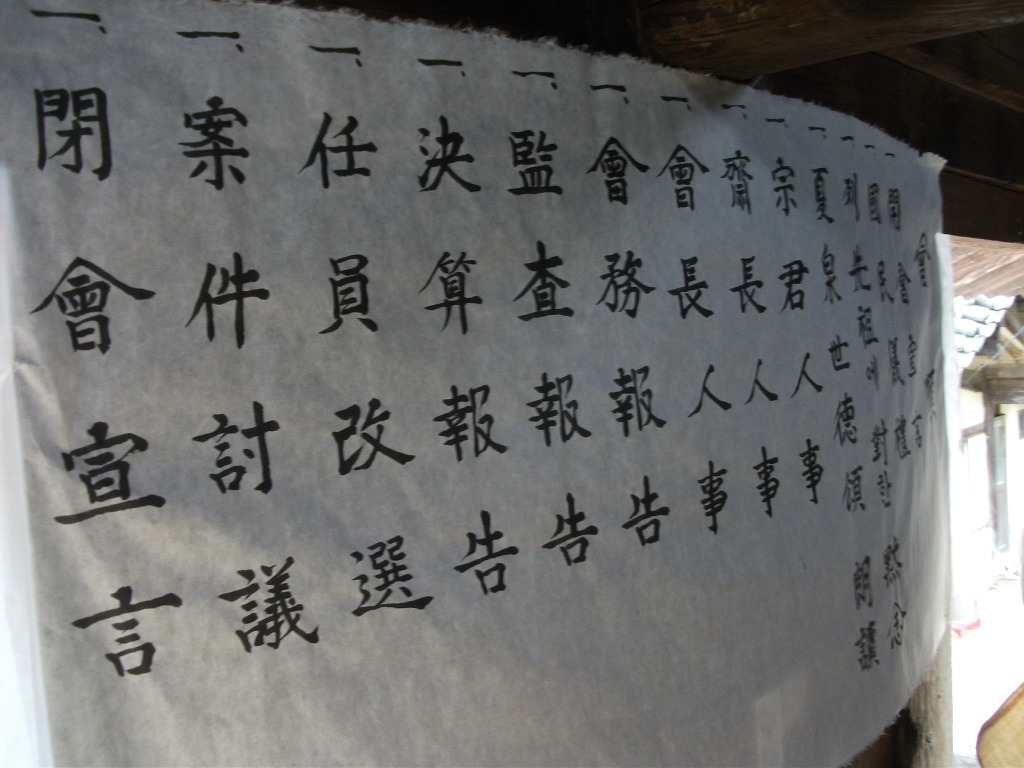 會
一、開會宣言
一、國民儀禮
一、列先祖에 對한 黙念
一、夏泉世德頌 朗讀
一、宗君人事
一、齋長人事
一、會長人事
一、會務報告
一、監査報告
一、決算報告
一、任員改選
一、案件討議
一、閉會宣言